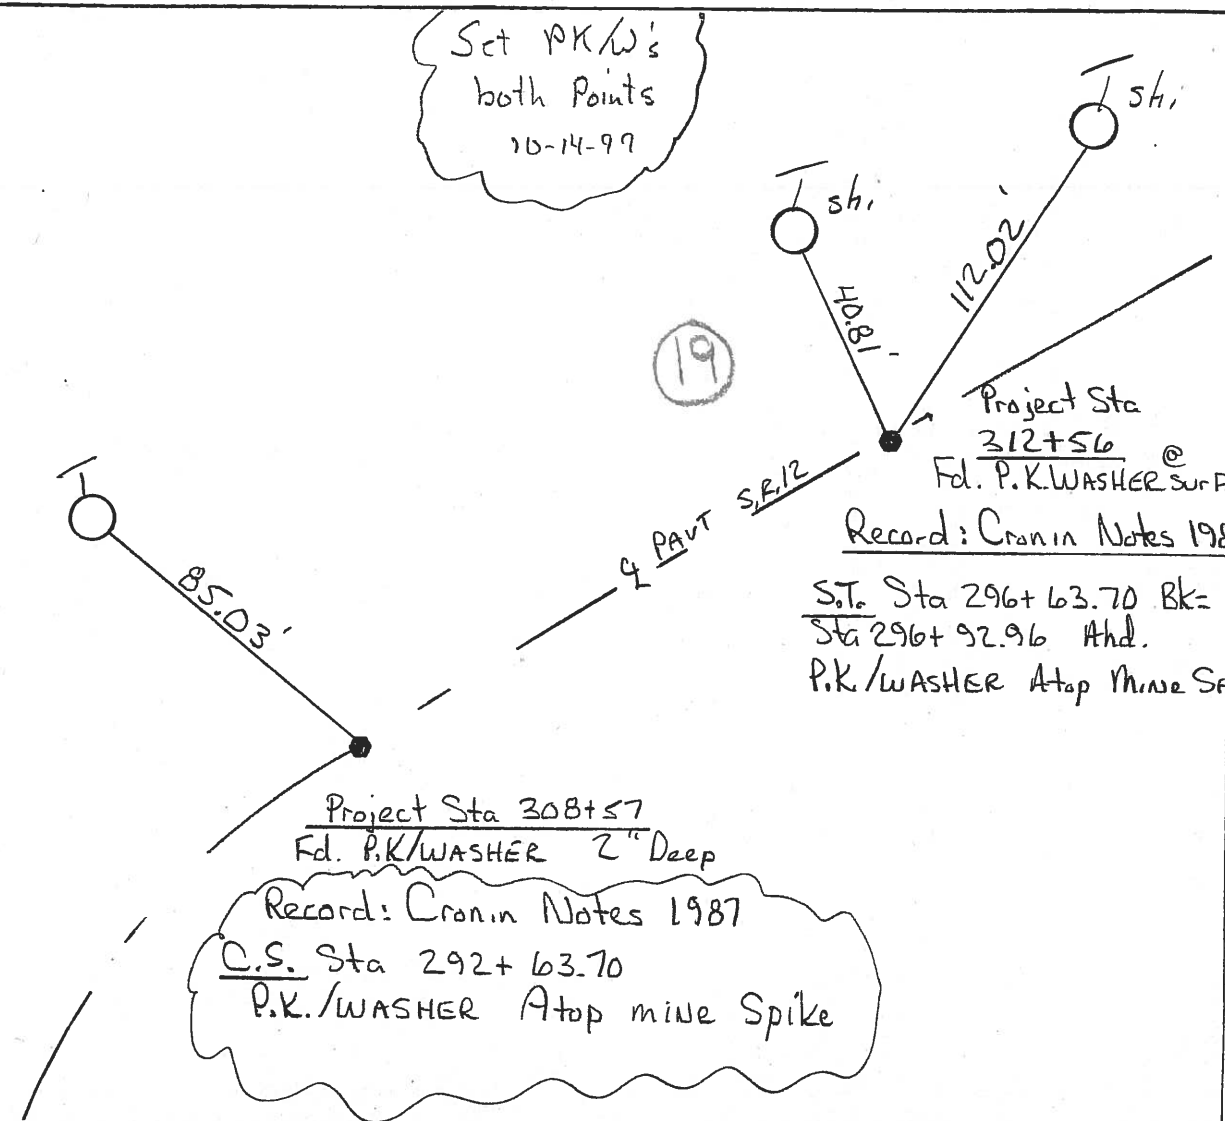 Set PK/W's
both Points
10-14-97
T shi
T shi
40.81'
112.02'
19
Project Sta
312+56
Fd. P.K. WASHER @ Surf
Record: Cronin Notes 198
℄ PAVT S.R.12
S.T. Sta 296+63.70 Bk=
Sta 296+92.96 Ahd.
P.K./WASHER Atop Mine
T
85.03'
Project Sta 308+57
Fd. P.K/WASHER 2" Deep
Record: Cronin Notes 1987
C.S. Sta 292+63.70
P.K./WASHER Atop mine Spike